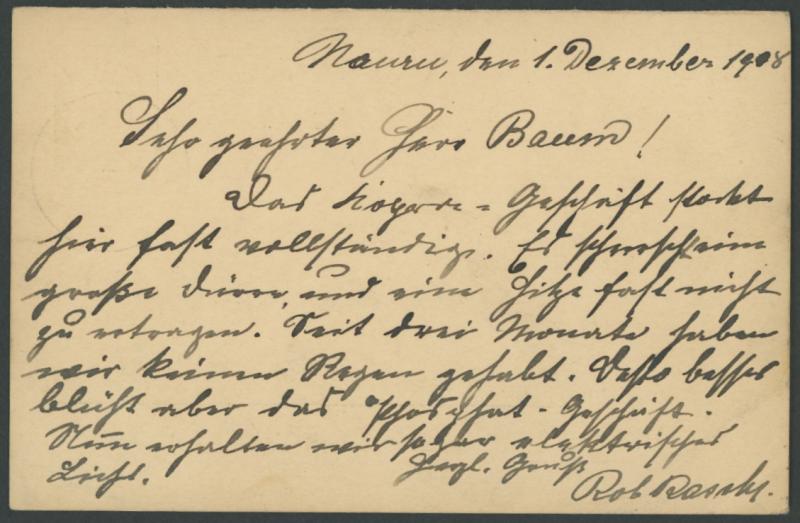 Nauru, den 1. Dezember 1908
Sehr geehrter Herr Baum!
Das Kopra-Geschäft stockt
hier fast vollständig. Es herrscht eine
große Dürre, und eine Hitze fast nicht
zu ertragen. Seit drei Monate haben
wir keinen Regen gehabt. Desto besser
blüht aber das Phosphat-Geschäft.
Nun erhalten wir sogar elektrisches
Licht. Herzl. Gruß
Rob Rasch.